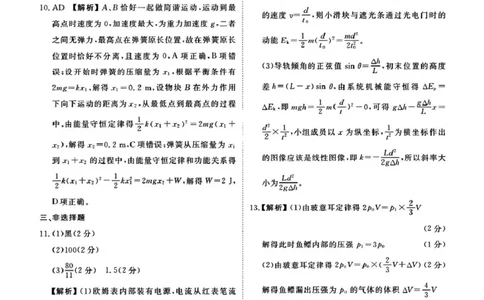 10.AD 【解析】A、B恰好一起做简谐运动,运动到最
高点时速度为0,加速度最大,为重力加速度g,二者
之间无弹力,最高点在弹簧原长位置,故在弹簧原长
位置时恰好不分离,且速度为0,A项正确,B项错
误;设开始时弹簧的压缩量为x₁,根据平衡条件有
2mg=kx₁,解得x₁=0.2 m,设物块B在外力作用
下向下运动的距离为x₂,从最低点到最高点的过程
中,由能量守恒定律得 1/2 k(x₁+x₂)²=2mg(x₁+
x₂),解得x₂=0.2 m,C项错误;弹簧从压缩量为x₁
到x₁+x₂的过程中,由能量守恒定律和功能关系得
1/2 k(x₁+x₂)²-1/2 kx₁²=2mgx₂+W,解得W=2 J,
D项正确。
三、非选择题
11.(1)黑(2分)
(2)100(2分)
(3) 80/11 (2分) 1.5(2分)
【解析】(1)欧姆表内部装有电源,电流从红表笔流
的速度v=d/t₀,则小滑块与遮光条通过光电门时的
动能Eₖ=1/2 m(d/t₀)²=md²/2t₀²。
(3)导轨倾角的正弦值sin θ=Δh/L,初末位置的高度
差h=(L-x)sin θ,由系统机械能守恒得ΔEₚ=
ΔEₖ,即mgh=1/2 m(d/t)²-0,可得gΔh-gΔh/L x=
d²/2×1/t²,小组成员以x为纵坐标,1/t²为横坐标作出
的图像应该是线性图像,即k=-Ld²/2gΔh,所以斜率大
小为Ld²/2gΔh。
13.【解析】(1)由玻意耳定律得2p₀V=p₁×2/3 V
(2分)
解得此时鱼鳔内部的压强p₁=3p₀ (1分)
(2)由玻意耳定律得2p₀V=p₀×(2/3 V+ΔV)(2分)
解得鱼鳔漏出压强为p₀的气体的体积ΔV=4/3 V